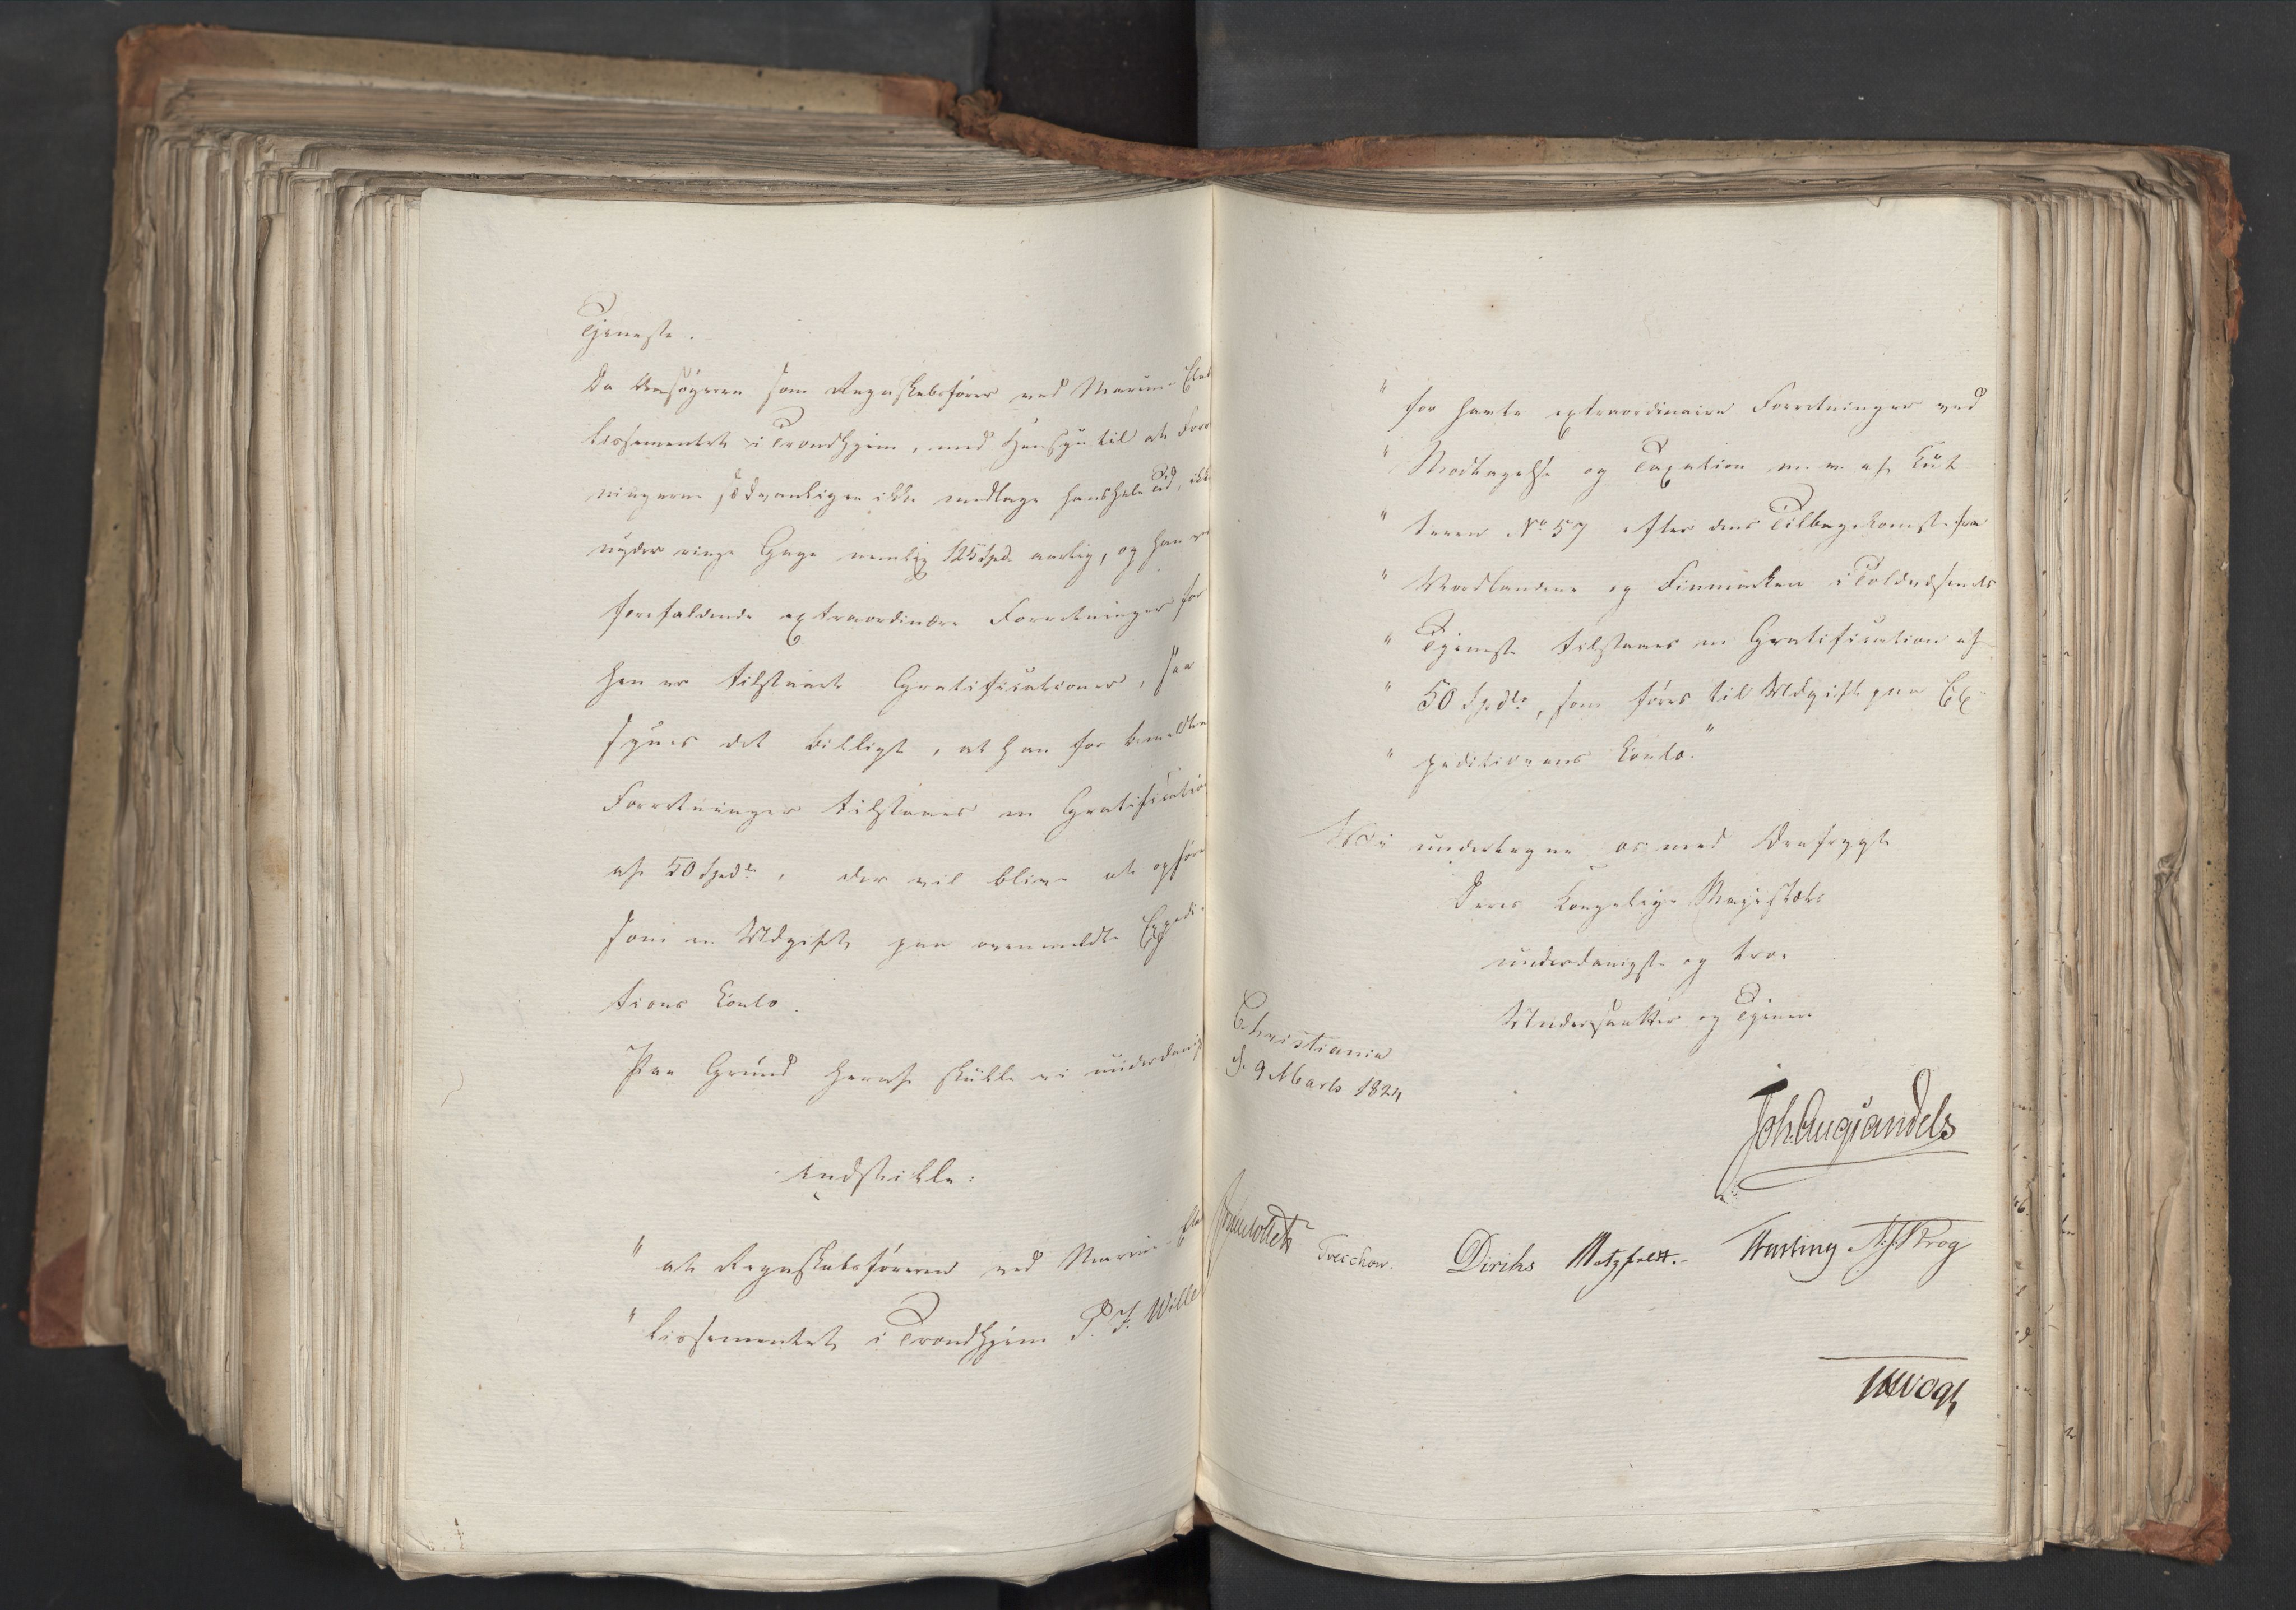 Tjeneste.
Da Ansøgeren som Regnskabsfører ved Marine-Etab
lissementet i Trondhjem, med Hensyn til at Forr
ningerne sædvanligen ikke medtage hans hele Tid, ikk
nyder ringe Gage nemlig 125 Spd. aarlig, og han
forefaldende extraordinære Forretninger for
hen er tilstaaet Gratificationer, saa
synes det billigt, at han for bemeldte
Forretninger tilstaaes en Gratification
af 50 Spdlr, der vil blive at opføre
som en Udgift paa ovenmeldte Expedi-
tions Conto.
Paa Grund heraf skulle vi underdanigst
indstille:
" at Regnskabsføreren ved Marine-Etab
" lissementet i Trondhjem P. F. Wille
" for havte extraordinaire Forretninger ved
" Modtagelse og Taxation m. v. af Cut
" teren No 57 efter dens Tilbagekomst fra
" Nordlandene og Finmarken i Toldvæsenets
" Tjeneste tilstaaes en Gratification af
" 50 Spdlr, som føres til Udgift paa Ex-
" peditionens Conto."
Vi undertegne os med Ærefrygt
Deres Kongelige Majestæts
underdanigste og troe
Undersaatter og Tjenere
Christiania
d. 9 Marts 1824
Joh. Aug. Sandels
JCollett
Treschow.
Diriks
Motzfeldt.
Fasting
Krog
Vogt